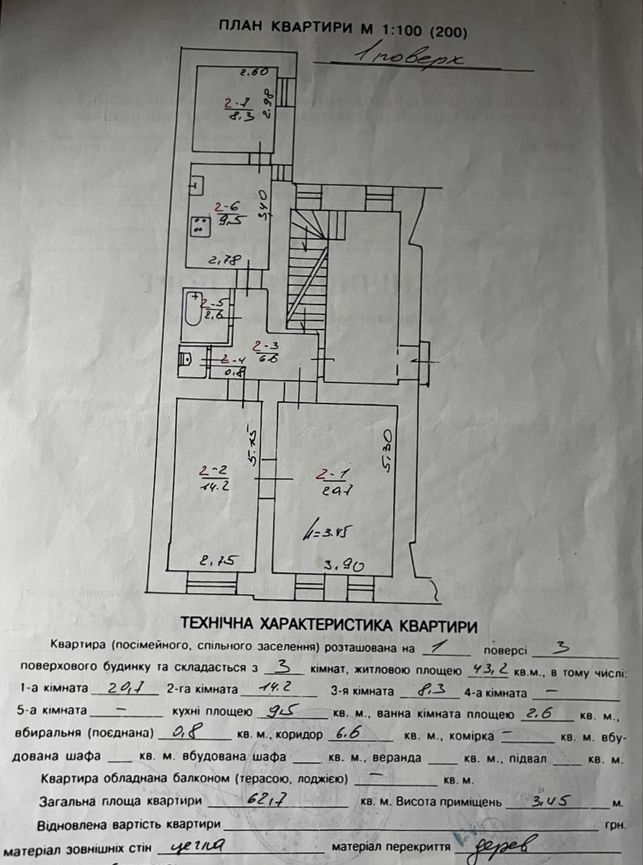 ПЛАН КВАРТИРИ М 1:100 (200)
1 поверх
2.60
2-7
8.3
2.98
2-6
9.5
3,40
2,78
2-5
2.6
2-3
6.6
2-4
0,8
5.15
5,30
2-2
14.2
2-1
20,7
h=3.45
2.75
3.90
ТЕХНІЧНА ХАРАКТЕРИСТИКА КВАРТИРИ
Квартира (посімейного, спільного заселення) розташована на 1 поверсі 3
поверхового будинку та складається з 3 кімнат, житловою площею 43,2 кв.м., в тому числі:
1-а кімната 20,7 2-га кімната 14.2 3-я кімната 8.3 4-а кімната —
5-а кімната — кухні площею 9,5 кв. м., ванна кімната площею 2.6 кв. м.,
вбиральня (поєднана) 0,8 кв. м., коридор 6.6 кв. м., комірка — кв. м. вбу-
дована шафа кв. м. вбудована шафа кв. м., веранда кв. м., підвал кв. м.
Квартира обладнана балконом (терасою, лоджією) — кв. м.
Загальна площа квартири 62,7 кв. м. Висота приміщень 3,45 м.
Відновлена вартість квартири грн.
матеріал зовнішніх стін цегла матеріал перекриття дерев